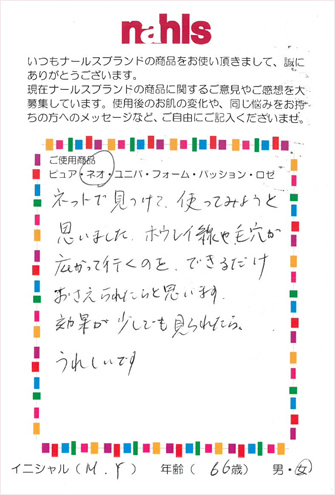 nahls
いつもナールスブランドの商品をお使い頂きまして、誠に
ありがとうございます。
現在ナールスブランドの商品に関するご意見やご感想を大
募集しています。使用後のお肌の変化や、同じ悩みをお持
ちの方へのメッセージなど、ご自由にご記入くださいませ。
ご使用商品
ピュア・ネオ・ユニバ・フォーム・パッション・ロゼ
ネットで見つけて、使ってみようと
思いました。ホウレイ線や毛穴が
広がって行くのを、できるだけ
おさえられたらと思います。
効果が少しでも見られたら、
うれしいです
イニシャル(M.Y) 年齢(66歳) 男・女